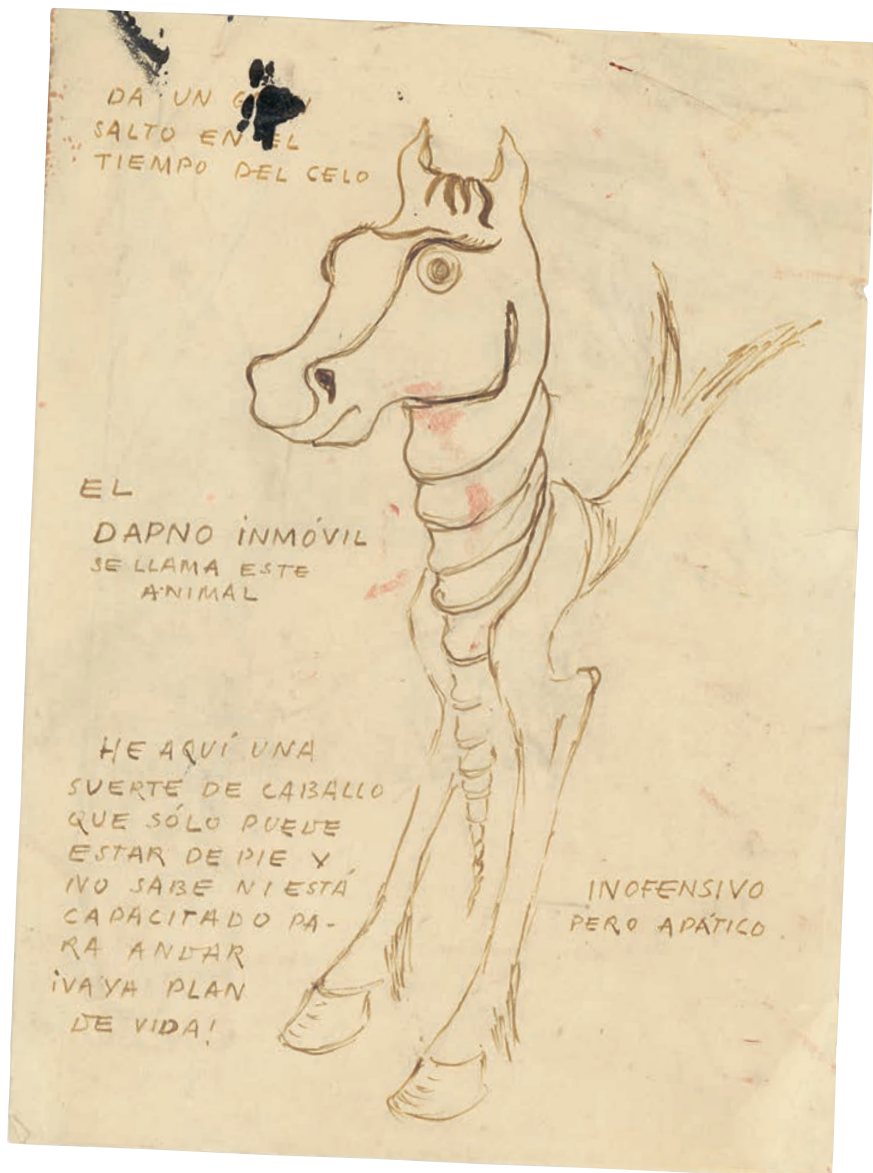 DA UN
SALTO EN EL
TIEMPO DEL CELO
EL
DAPNO INMÓVIL
SE LLAMA ESTE
ANIMAL
HE AQUÍ UNA
SUERTE DE CABALLO
QUE SÓLO PUEDE
ESTAR DE PIE Y
NO SABE NI ESTÁ
CAPACITADO PA-
RA ANDAR
¡VAYA PLAN
DE VIDA!
INOFENSIVO
PERO APÁTICO